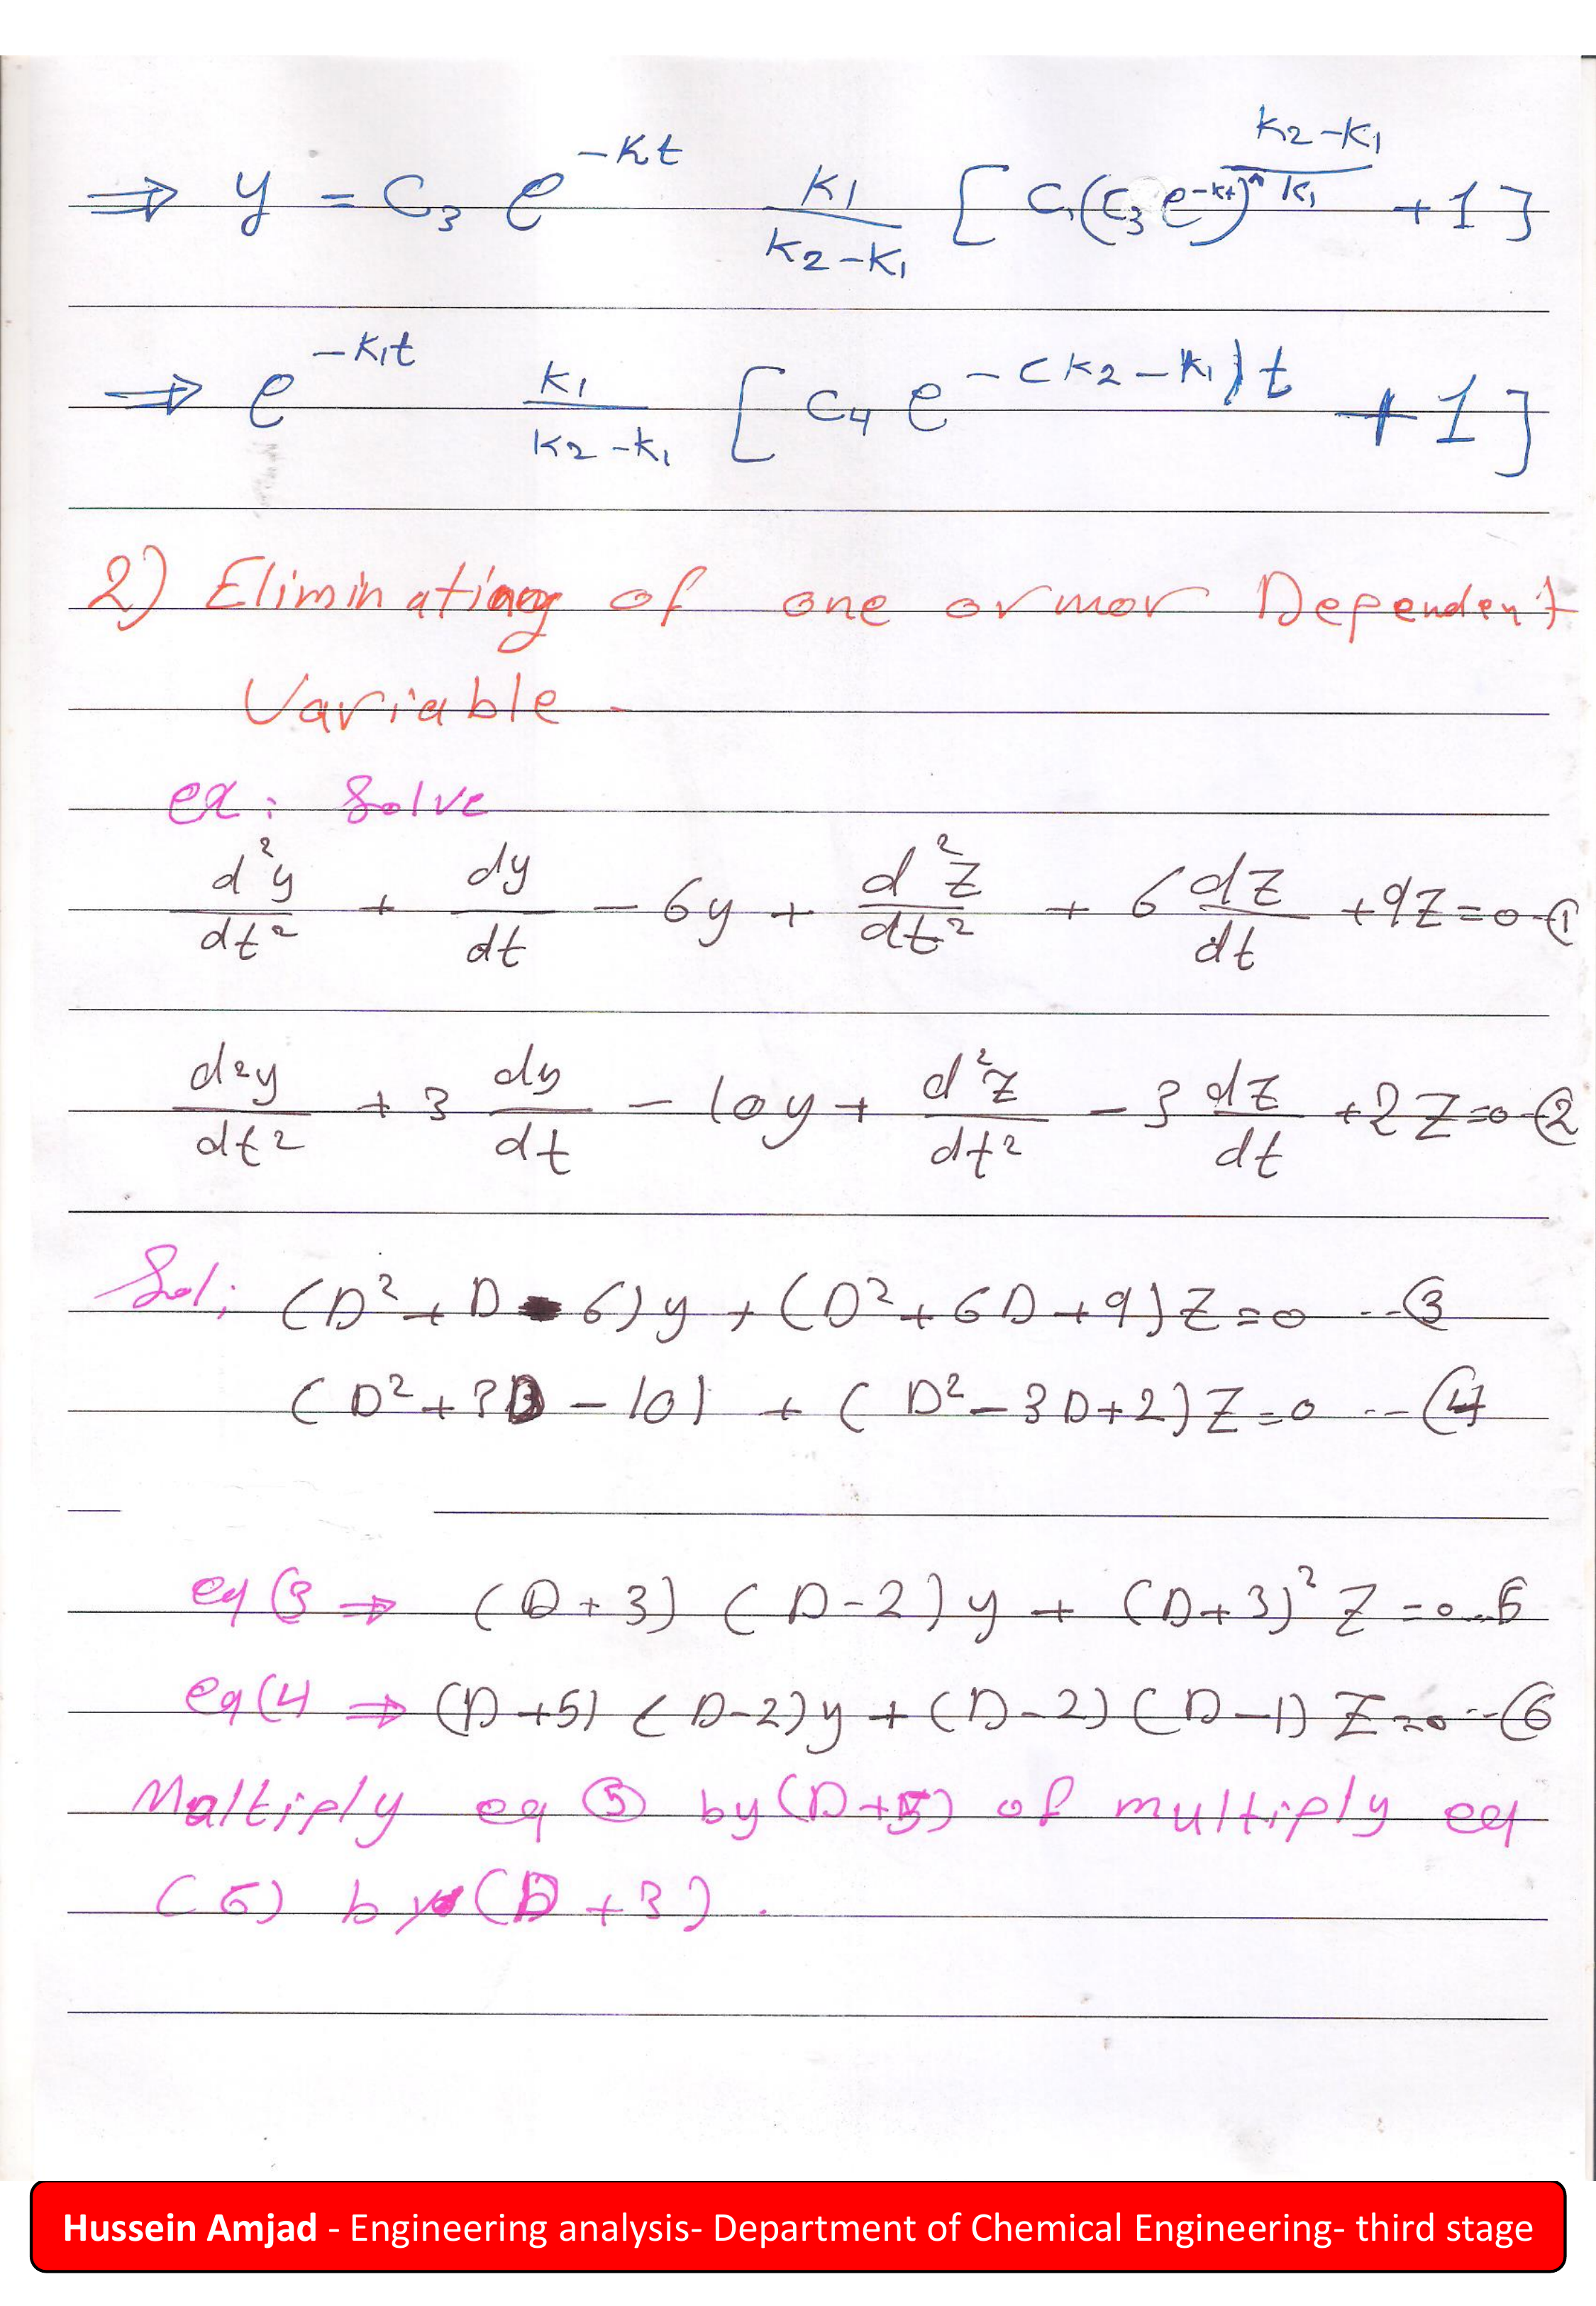 ⇒ y = C₃ e^(-Kt) K₁/(K₂-K₁) [ C₁(C₃ e^(-kt))^((K₂-K₁)/K₁) + 1 ]
⇒ e^(-K₁t) K₁/(K₂-K₁) [ C₄ e^(-(K₂-K₁)t) + 1 ]
2) Eliminating of one or mor Dependent
Variable.
ex: Solve
d²y/dt² + dy/dt - 6y + d²Z/dt² + 6 dZ/dt + 9Z = 0 - ①
d²y/dt² + 3 dy/dt - 10y + d²Z/dt² - 3 dZ/dt + 2Z = 0 - ②
Sol; (D² + D - 6)y + (D² + 6D + 9)Z = 0 --- ③
(D² + 3D - 10) + (D² - 3D + 2)Z = 0 --- ④
eq(3 ⇒ (D + 3) (D - 2)y + (D + 3)² Z = 0 ... 5
eq(4 ⇒ (D + 5) (D - 2)y + (D - 2) (D - 1) Z = 0 --- (6
Maltiply eq ⑤ by (D + 5) of multiply eq
(6) by (D + 3).
Hussein Amjad - Engineering analysis- Department of Chemical Engineering- third stage